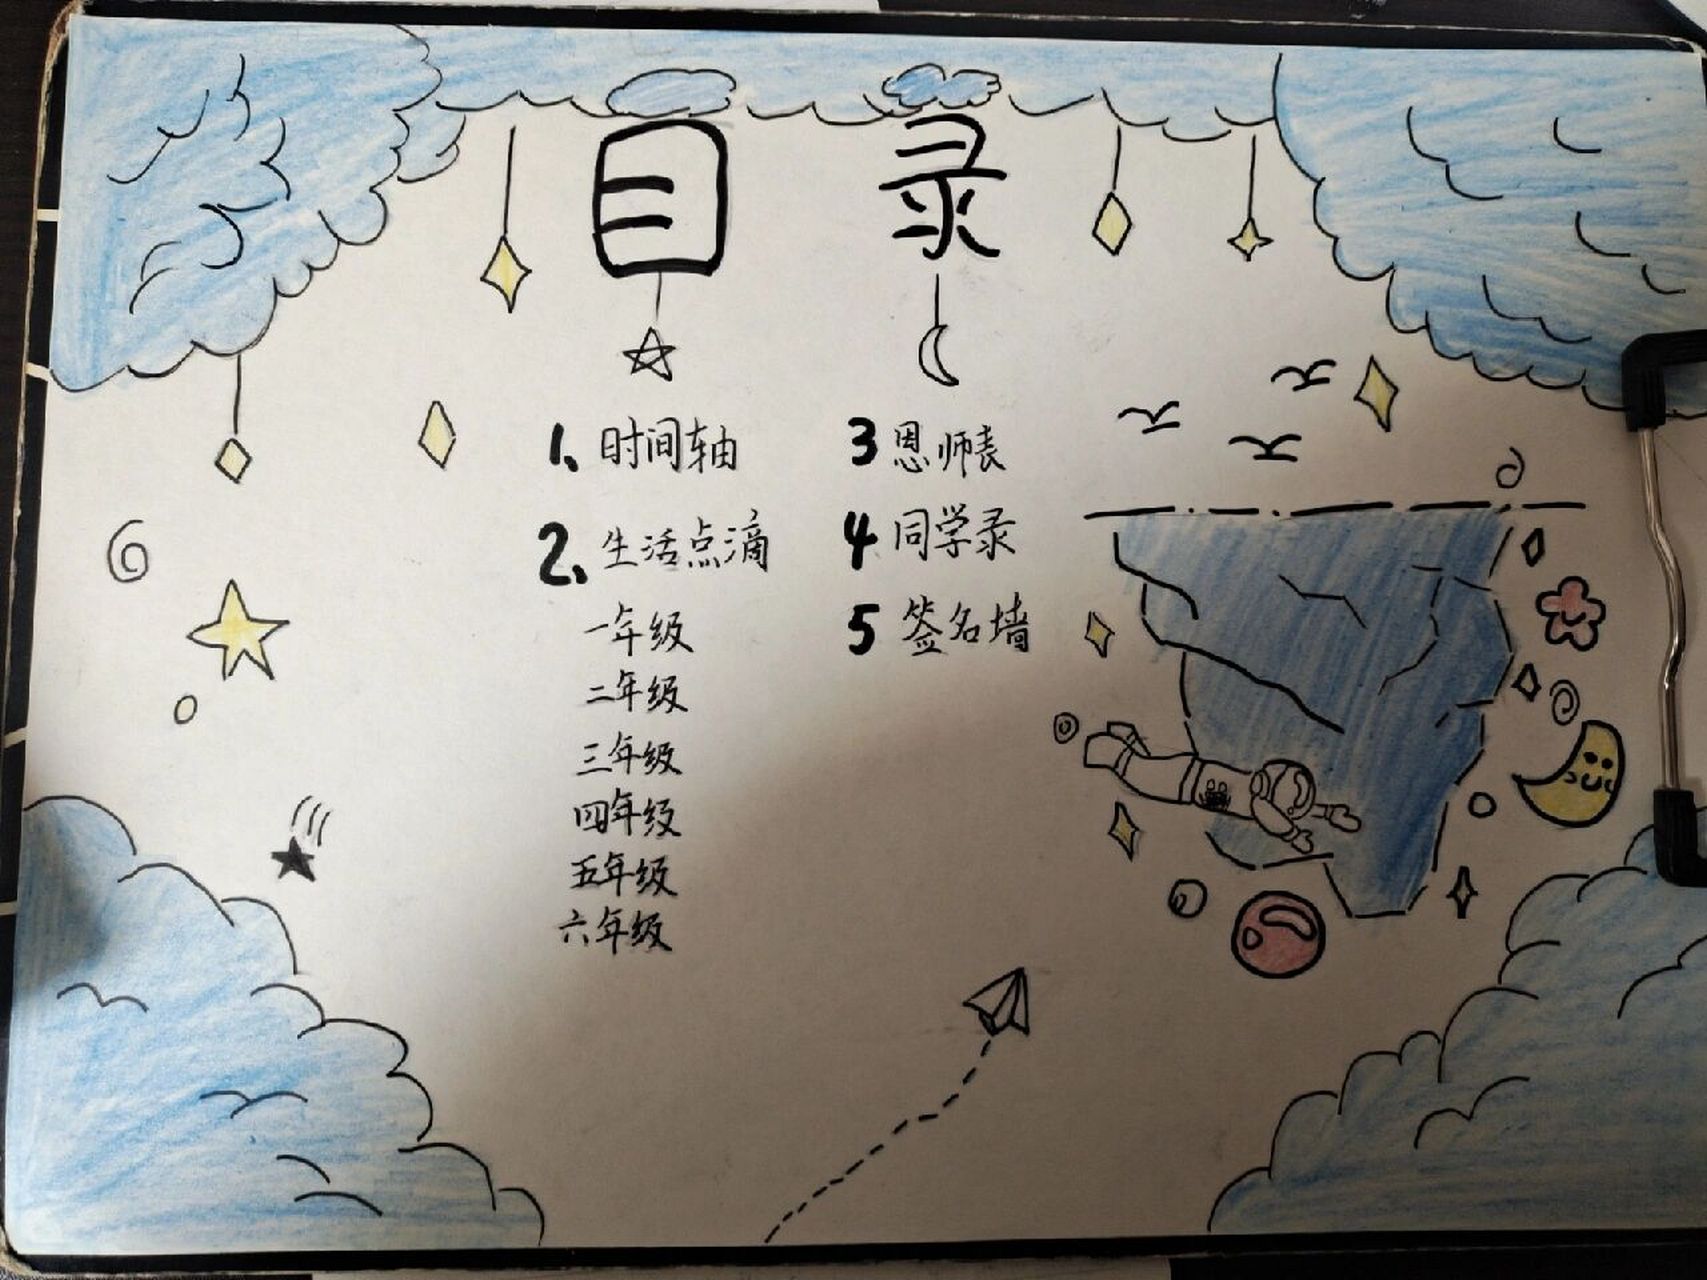 目录
1、时间轴
2、生活点滴
一年级
二年级
三年级
四年级
五年级
六年级
3 恩师表
4 同学录
5 签名墙